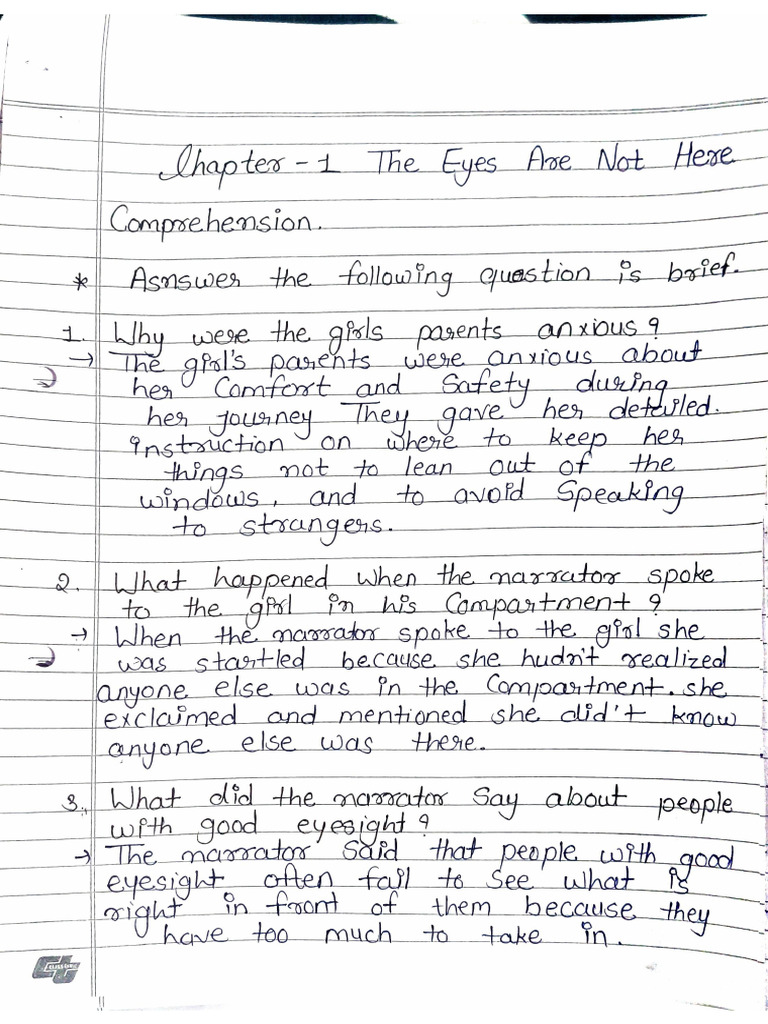 Chapter - 1 The Eyes Are Not Here
Comprehension.
* Asnswer the following question is brief.
1. Why were the girls parents anxious?
→ The girl's parents were anxious about
her Comfort and Safety during
her journey They gave her detailed.
instruction on where to keep her
things not to lean out of the
windows, and to avoid Speaking
to strangers.
2. What happened when the narrator spoke
to the girl in his Compartment?
→ When the narrator spoke to the girl she
was startled because she hudn't realized
anyone else was in the Compartment. she
exclaimed and mentioned she did't know
anyone else was there.
3. What did the narrator Say about people
with good eyesight?
→ The narrator Said that people with good
eyesight often fail to See what is
right in front of them because they
have too much to take in.
Classmate